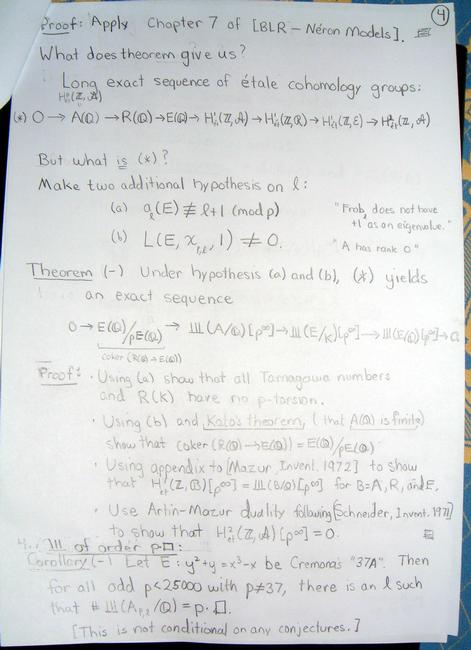 ④
Proof: Apply Chapter 7 of [BLR - Néron Models].
What does theorem give us?
Long exact sequence of étale cohomology groups:
H⁰ét(ℤ, 𝒜)
(*) 0 → A(ℚ) → R(ℚ) → E(ℚ) → H¹ét(ℤ,𝒜) → H¹ét(ℤ,ℛ) → H¹ét(ℤ,ℰ) → H²ét(ℤ,𝒜)
But what is (*)?
Make two additional hypothesis on ℓ:
(a) aℓ(E) ≢ ℓ+1 (mod p) "Frobℓ does not have +1 as an eigenvalue."
(b) L(E, χp,ℓ, 1) ≠ 0. "A has rank 0"
Theorem (-) Under hypothesis (a) and (b), (*) yields
an exact sequence
0 → E(ℚ)/pE(ℚ) → Ш(A/ℚ)[p^∞] → Ш(E/K)[p^∞] → Ш(E/ℚ)[p^∞] → 0
coker (R(ℚ) → E(ℚ))
Proof: • Using (a) show that all Tamagawa numbers
and R(K) have no p-torsion.
• Using (b) and Kato's theorem, (that A(ℚ) is finite)
show that coker (R(ℚ) → E(ℚ)) = E(ℚ)/pE(ℚ)
• Using appendix to [Mazur, Invent. 1972] to show
that H¹ét(ℤ,B)[p^∞] = Ш(B/ℚ)[p^∞] for B=A, R, and E.
• Use Artin-Mazur duality following [Schneider, Invent. 1971]
to show that H²ét(ℤ,𝒜)[p^∞] = 0.
4. Ш of order p·□:
Corollary (-) Let E: y²+y = x³-x be Cremona's "37A". Then
for all odd p<25000 with p≠37, there is an ℓ such
that #Ш(Ap,ℓ/ℚ) = p·□.
[This is not conditional on any conjectures.]